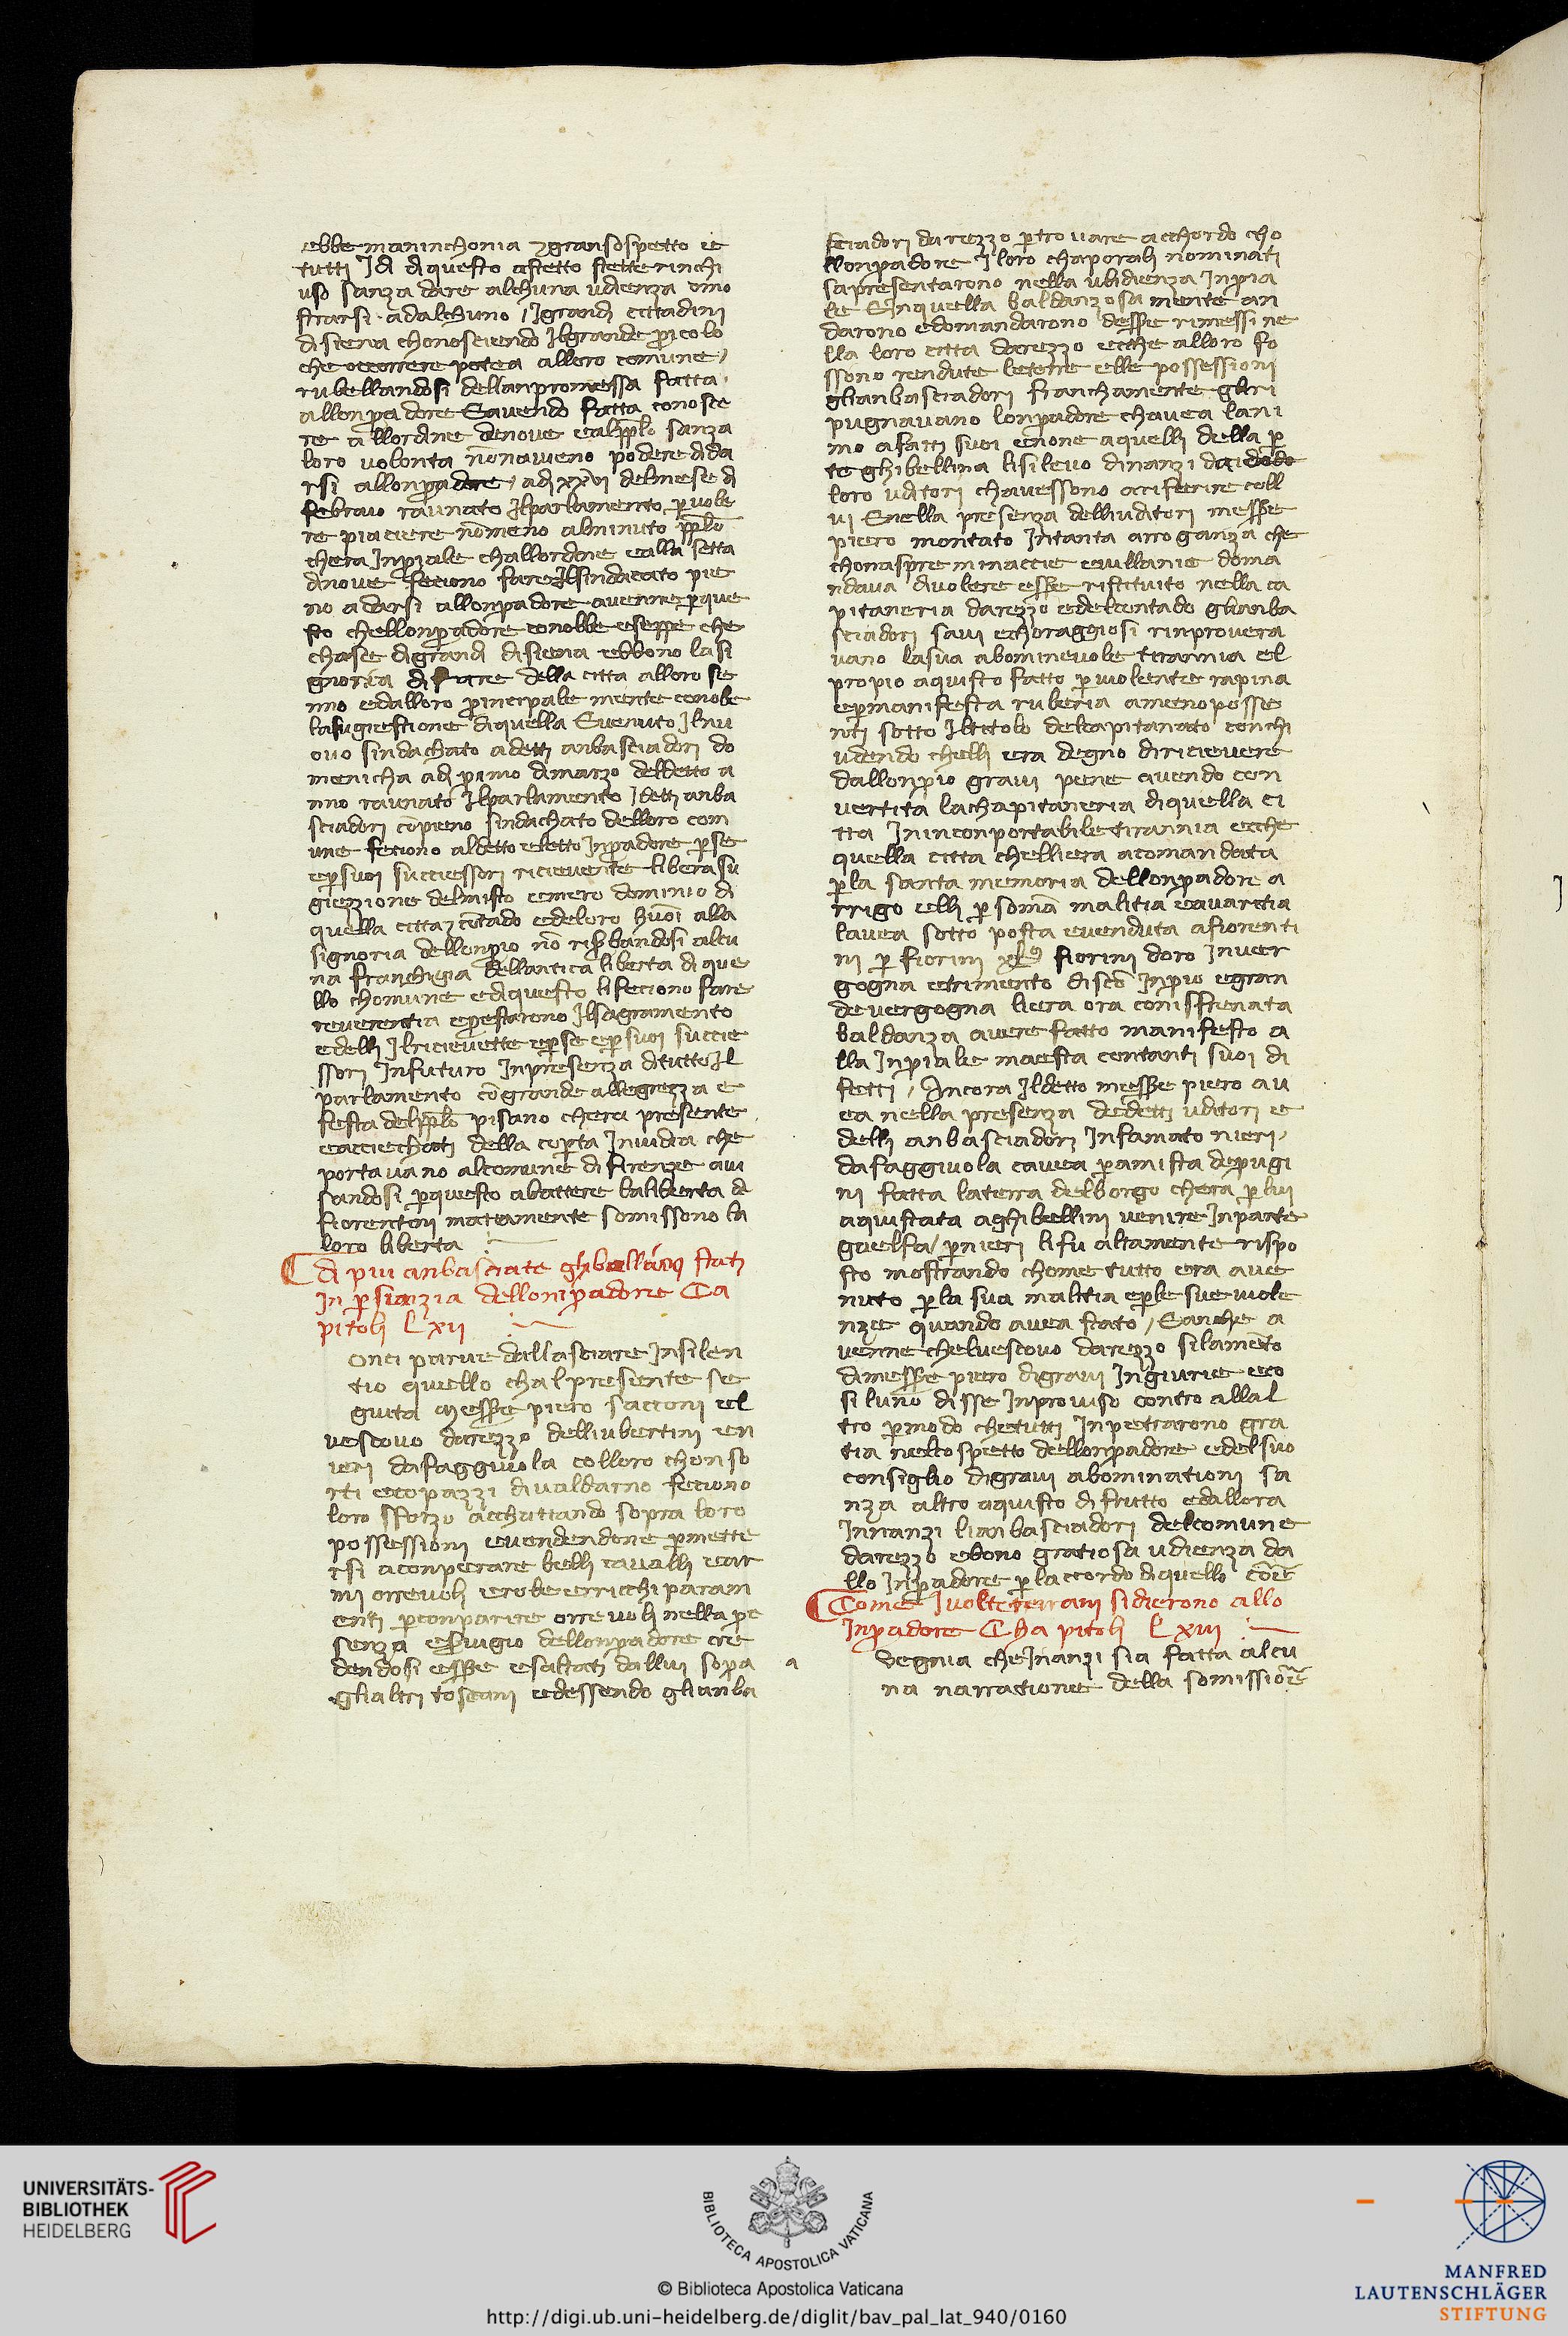 ebbe maninchonia ⁊ gran sospetto ie
tutti Idi di questo aspetto stette rinchi
uso sanza dare alchuna udienza omo
strarsi adalchuno / Igrandi cittadini
di siena chonosciendo Ilgrande pericolo
che occorrere potea alloro comune /
rubellandosi dellanpromessa fatta
allonpadore Eavendo fatta conoscie
re allordine denove ealpplo sanza
loro volonta nonaveno podere dida
rsi allonpadore / adi xxvi delmese di
febraio raunato Ilparlamento per vole
re piaciere nōmeno alminuto pplo
chera Inpiale challordine ealla setta
dinove feciono fare Ilsindacato pie
no adarsi allonpadore avenne perque
sto chellonpadore conobbe eseppe che
chase digrandi disiena ebbono lasi
gnoria di dare della citta alloro se
nno edalloro principale mente conobe
lasugiestione diquella Evenuto Ilnu
ovo sindachato adetti anbasciadori do
menicha adi primo dimarzo deldetto a
nno raunato Ilparlamento Idetti anba
sciadori cōpieno sindachato delloro com
une feciono aldetto eletto Inpadore perse
epersuoi succiessori ricievente libera su
giezzione delmisto emero dominio di
quella citta ⁊ cōtado edeloro huōi alla
signoria dellonpio nō riserbandosi alcu
na franchigia dellantica liberta di que
llo chomune ediquesto lifeciono fare
reverentia eprestarono Ilsagramento
edelli Ilricievette eperse epersuoi succie
ssori Infuturo Inpresenza ditutto Il
parlamento cōgrande allegrezza e
festa delpplo pisano chera presente
eacciechati della coperta Invidia che
portavano alcomune di firenze avi
sandosi perquesto abattere laliberta di
fiorentini mattamente somissono la
loro liberta
Di piu anbasciate ghibelline stati
In persienzia dellonpadore Ca
pitoli Lxii
onci parve dallasciare Insilen
tio quello chalpresiente se
guita Messere piero sacconi el
vescovo darezzo delliubertini en
ieri dafaggivola colloro chonso
rti ecopazzi divaldarno feciono
loro sforzo acchattando sopra loro
possessioni evendendone permette
rsi aconperare belli cavalli ear
mi orrevoli erobe erricchi param
enti perconparire orrevoli nella pre
senza eservigio dellonpadore cre
dendosi essere esaltati dallui sopra
glialtri toscani edessendo glianba
sciadori darezzo per trovare acchordo cho
llonpadore Iloro chaporali nominati
sapresentarono nella ubidienza Inpia
le Einquella baldanzosa mente an
darono edomandarono dessere rimessi ne
lla loro citta darezzo ecche alloro fo
ssono rendute leterre elle possessioni
glianbasciadori franchamente glıri
pugnavano lonpadore chavea lani
mo afatti suoi enone aquelli della par
te ghibellina lisilevo dinanzi
loro uditori chavessono ariferire coll
ui Enella presenza delliuditori messere
piero montato Intanta arroganza che
chonaspre minaccie evillanie doma
ndava divolere essere ristituito nella ca
pitaneria darezzo edelcontado glianba
sciadori savi echoraggiosi rinprovera
vano lasua abominevole tirannia el
propio aquisto fatto perviolente rapina
epermanifesta ruberia ameno posse
nti sotto Iltitolo delcapitanato conchi
udendo chelli era degno diricievere
dallonpio gravi pene avendo con
vertita lachapitaneria diquella ci
tta Inincomportabile tirannia ecche
quella citta chelliera acomandata
perla santa memoria dellonpadore a
rrigo elli per somā malitia eavaritia
lavea sotto posta evenduta afiorenti
ni per fiorini fiorini doro Inver
gogna etrimento disco Inpio egran
de vergogna liera ora con isfrenata
baldanza avere fatto manifesto a
lla Inpiale maesta contanti suoi di
fetti / Ancora Ildetto messere piero av
ea nella presenza dedetti uditori e
delli anbasciadori Infamato nieri /
dafaggivola cavea peramista deperugi
ni fatta laterra delborgo chera per lui
aquistata aghibellini venire Inparte
guelfa / pernieri li fu altamente rispo
sto mostrando chome tutto era ave
nuto perla sua malitia eperle sue viole
nze quando avea stato / Eanche a
venne chelvescovo darezzo silamēto
dimessere piero digravi Ingiurie ecco
si luno disse Inproviso contro allal
tro permodo chetutti Inpetrarono gra
tia nelcospetto dellonpadore edel suo
consiglio digravi abominationi sa
nza altro aquisto di frutto edallora
Innanzi lianbasciadori delcomune
darezzo ebono gratiosa udienza da
llo Inpadore perlaccordo diquello cōe
Come Ivolterrani sidierono allo
Inpadore Chapitoli Lxiii
a vegnia che Inanzi sia fatta alcu
na narratione della somissiōe
UNIVERSITÄTS-
BIBLIOTHEK
HEIDELBERG
BIBLIOTECA APOSTOLICA VATICANA
© Biblioteca Apostolica Vaticana
http://digi.ub.uni-heidelberg.de/diglit/bav_pal_lat_940/0160
MANFRED
LAUTENSCHLÄGER
STIFTUNG